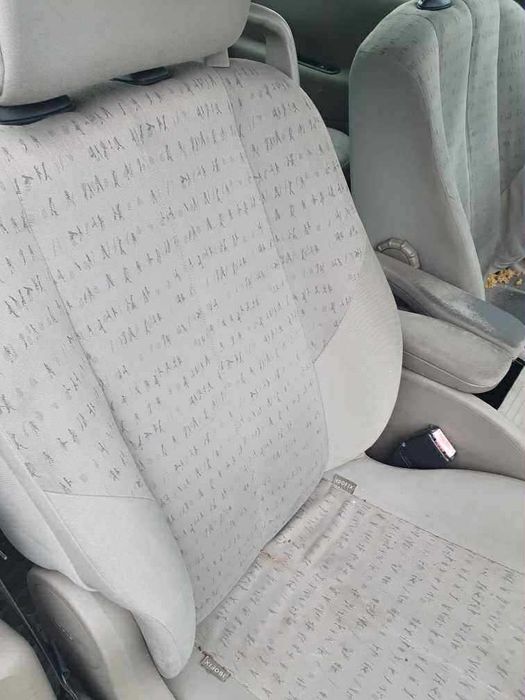 ISOFIX
ISOFIX